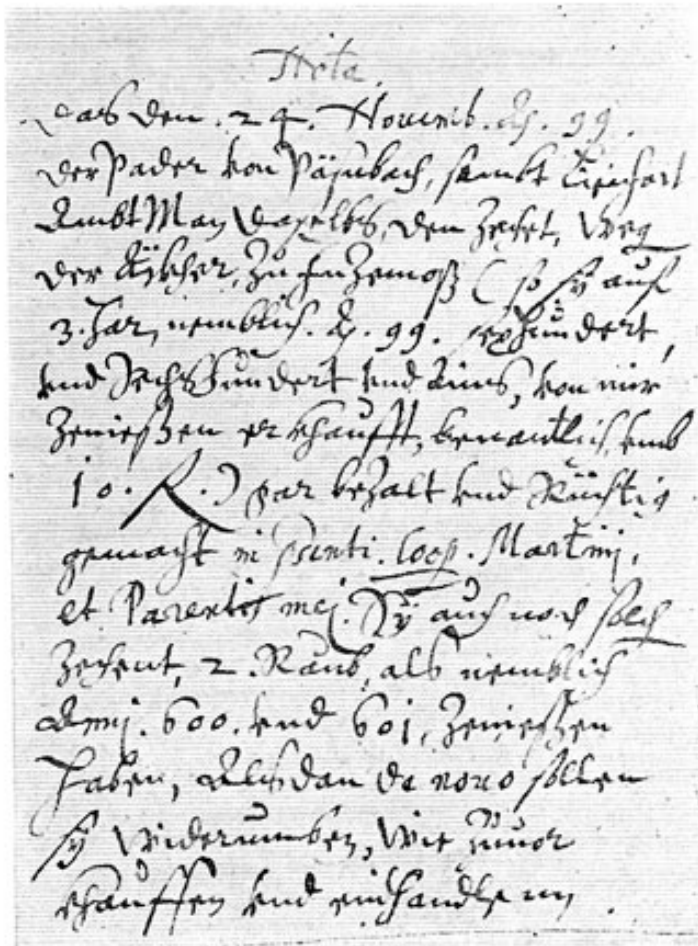 Nota.
das den . 24 . Nouemb. Ao. 99 .
der Pader von Päsnbach, sambt
AmbtMan daselbs, den Zechet, Weg
der Äkher, zu (so sÿ auf
3. Jar, nemblich. Ao. 99. sexhundert,
vnd Sechshundert vnd Ains, von mir
Zeniessen erkhaufft, benantlich, vmb
10. R.) par bezalt vnd Richtig
gemacht in psenti. Coop. Martini,
et Parentis mei. Sÿ auch noch solch
Zechent, 2. Raub, als nemblich
Anni. 600. vnd 601, Zeniessen
haben, Alsdan de nouo sollen
sÿ Widerumben, Wie Zuuor
khauffen vnd einhandlen .